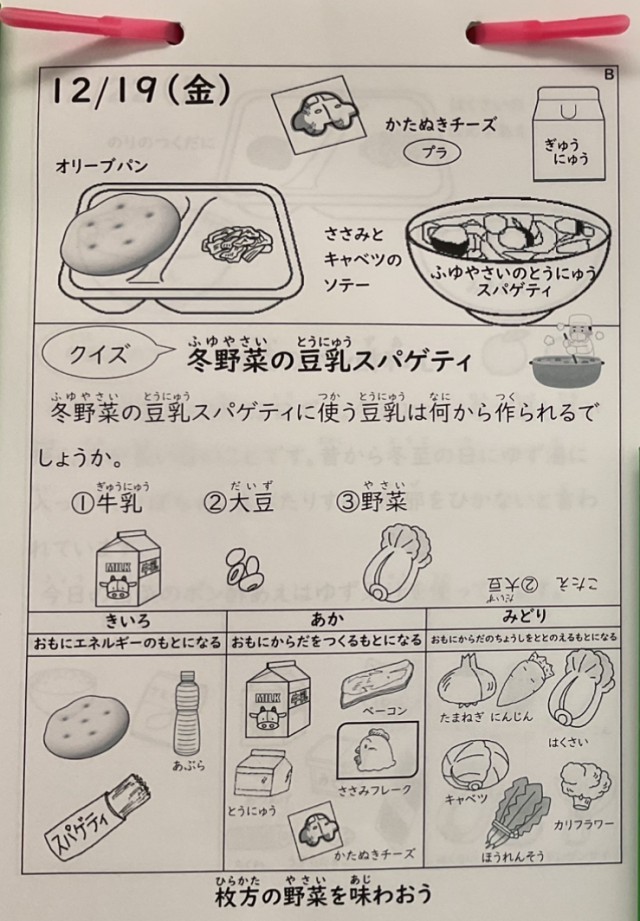 B
12/19(金)
かたぬきチーズ
プラ
ぎゅう
にゅう
オリーブパン
ささみと
キャベツの
ソテー
ふゆやさいのとうにゅう
スパゲティ
クイズ
ふゆやさい とうにゅう
冬野菜の豆乳スパゲティ
ふゆやさい とうにゅう つか とうにゅう なに つく
冬野菜の豆乳スパゲティに使う豆乳は何から作られるで
しょうか。
ぎゅうにゅう だいず やさい
①牛乳 ②大豆 ③野菜
MILK 牛乳
こたえ ②大豆
だいず
きいろ あか みどり
おもにエネルギーのもとになる おもにからだをつくるもとになる おもにからだのちょうしをととのえるもとになる
あぶら
スパゲティ
MILK 牛乳
ベーコン
とうにゅう
ささみフレーク
かたぬきチーズ
たまねぎ にんじん
はくさい
キャベツ
カリフラワー
ほうれんそう
ひらかた やさい あじ
枚方の野菜を味わおう